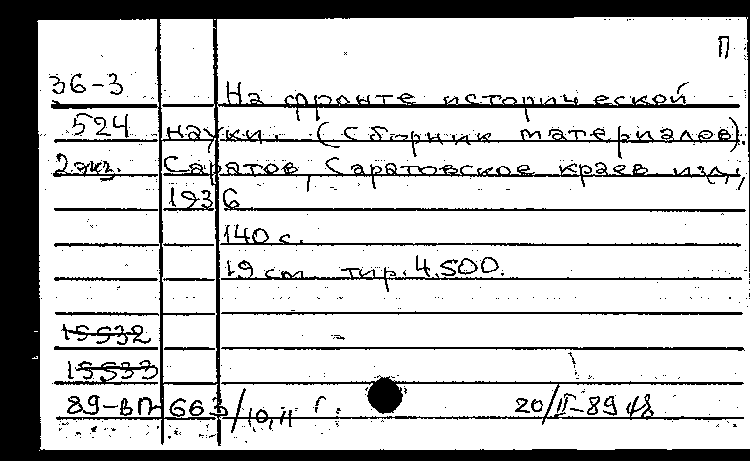 П
36-3 На фронте исторической
524 науки. (Сборник материалов).
2 экз. Саратов, Саратовское краев. изд.,
1936
140 с.
19 см. тир. 4.500.
15532
15533
89-вп 663/10,11 г.
20/II-89